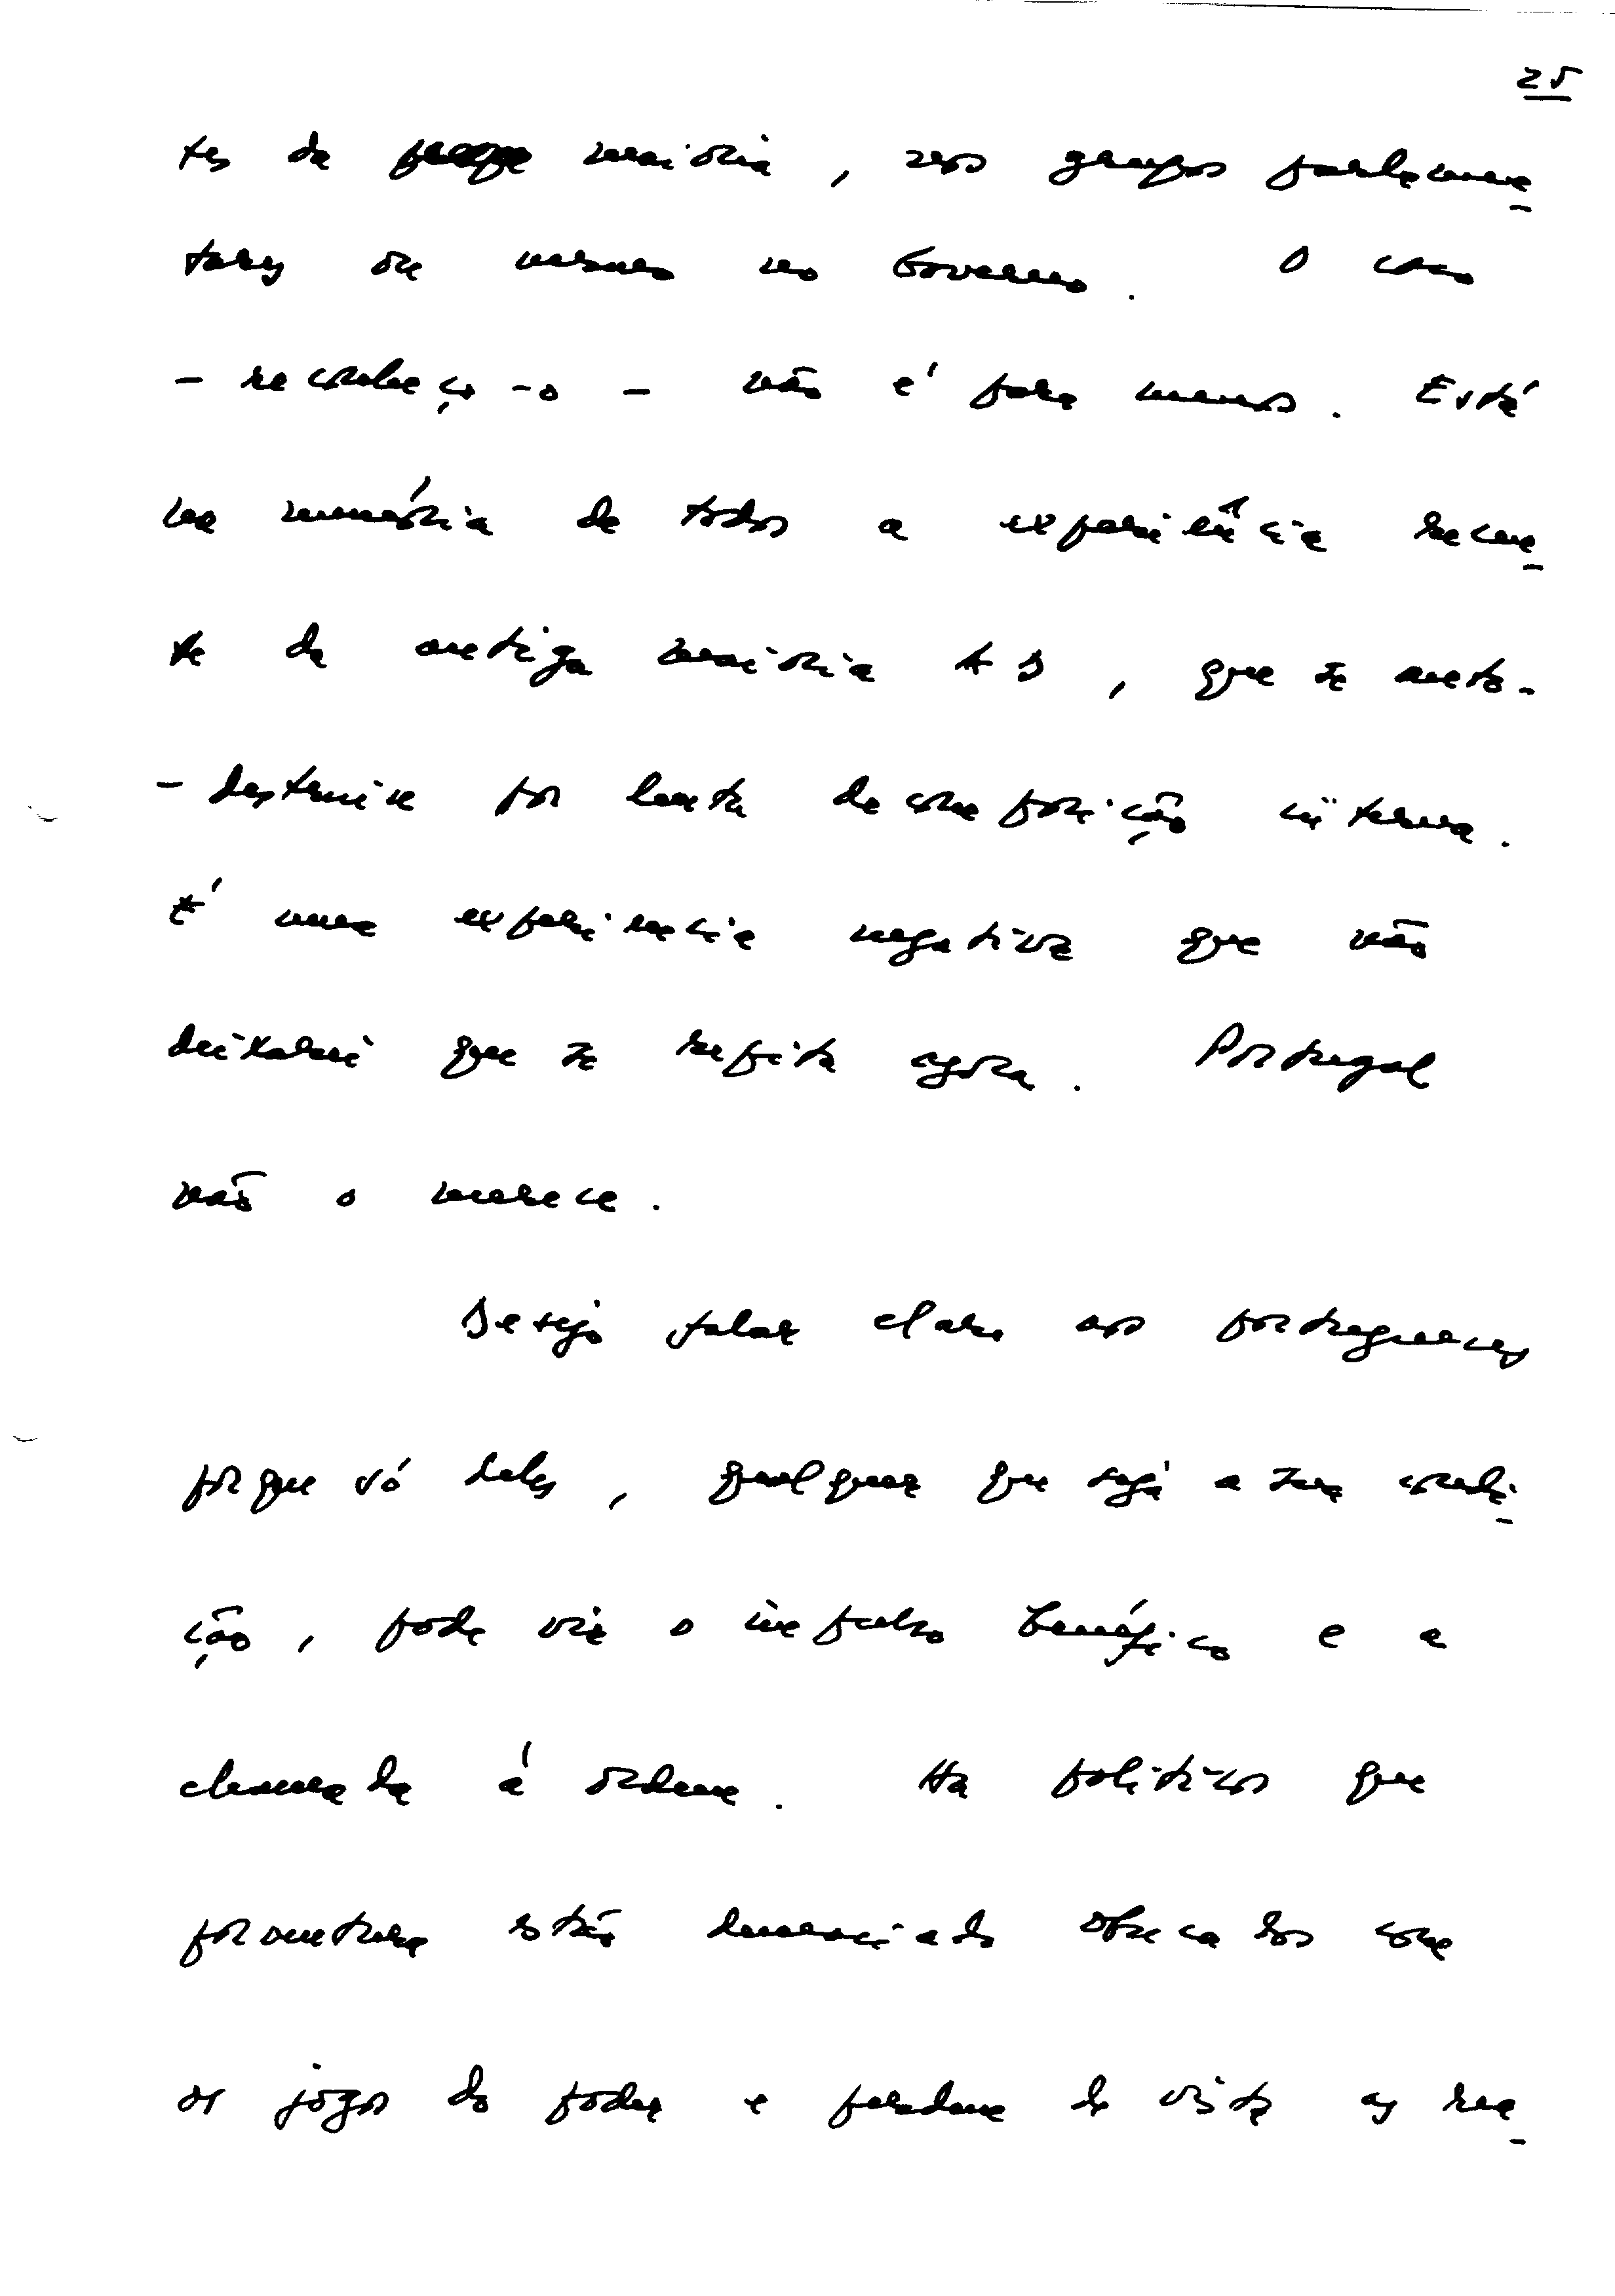 25
tes da maioria, nos grupos parlamen
tares ou mesmo no Governo. O caso
- reconheço-o - não é para menos. Está
na memória de todos a experiência recen
te da antiga maioria AD, que se auto-
-destruiu por lenta decomposição interna.
É uma experiencia negativa que não
deixarei que se repita agora. Portugal
não o merece.
Desejo falar claro aos portugueses
porque só deles, qualquer que seja a sua condi
ção, pode vir o impulso benéfico e a
chamada á ordem. Ha politicos que
porventura estão demasiado ofuscados com
os jogos do poder e perdem de vista as rea